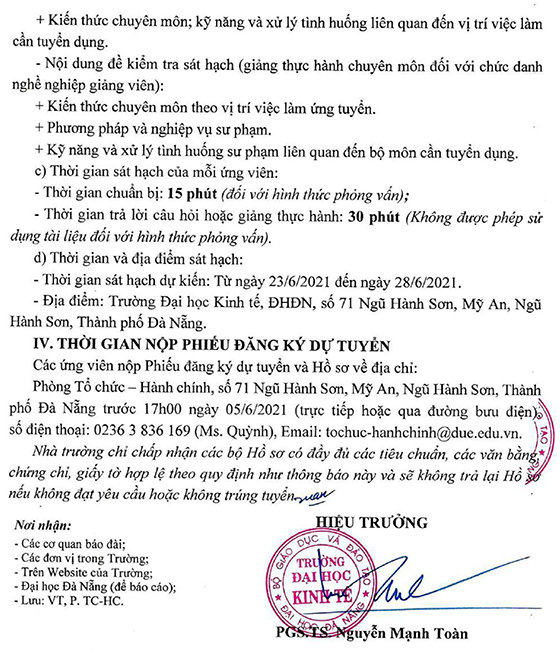 + Kiến thức chuyên môn; kỹ năng và xử lý tình huống liên quan đến vị trí việc làm
cần tuyển dụng.
- Nội dung đề kiểm tra sát hạch (giảng thực hành chuyên môn đối với chức danh
nghề nghiệp giảng viên):
+ Kiến thức chuyên môn theo vị trí việc làm ứng tuyển.
+ Phương pháp và nghiệp vụ sư phạm.
+ Kỹ năng và xử lý tình huống sư phạm liên quan đến bộ môn cần tuyển dụng.
c) Thời gian sát hạch của mỗi ứng viên:
- Thời gian chuẩn bị: 15 phút (đối với hình thức phỏng vấn);
- Thời gian trả lời câu hỏi hoặc giảng thực hành: 30 phút (Không được phép sử
dụng tài liệu đối với hình thức phỏng vấn).
d) Thời gian và địa điểm sát hạch:
- Thời gian sát hạch dự kiến: Từ ngày 23/6/2021 đến ngày 28/6/2021.
- Địa điểm: Trường Đại học Kinh tế, ĐHĐN, số 71 Ngũ Hành Sơn, Mỹ An, Ngũ
Hành Sơn, Thành phố Đà Nẵng.
IV. THỜI GIAN NỘP PHIẾU ĐĂNG KÝ DỰ TUYỂN
Các ứng viên nộp Phiếu đăng ký dự tuyển và Hồ sơ về địa chỉ:
Phòng Tổ chức – Hành chính, số 71 Ngũ Hành Sơn, Mỹ An, Ngũ Hành Sơn, Thành
phố Đà Nẵng trước 17h00 ngày 05/6/2021 (trực tiếp hoặc qua đường bưu điện),
số điện thoại: 0236 3 836 169 (Ms. Quỳnh), Email: tochuc-hanhchinh@due.edu.vn.
Nhà trường chỉ chấp nhận các bộ Hồ sơ có đầy đủ các tiêu chuẩn, các văn bằng,
chứng chỉ, giấy tờ hợp lệ theo quy định như thông báo này và sẽ không trả lại Hồ sơ
nếu không đạt yêu cầu hoặc không trúng tuyển.
Nơi nhận:
- Các cơ quan báo đài;
- Các đơn vị trong Trường;
- Trên Website của Trường;
- Đại học Đà Nẵng (để báo cáo);
- Lưu: VT, P. TC-HC.
HIỆU TRƯỞNG
BỘ GIÁO DỤC VÀ ĐÀO TẠO
TRƯỜNG
ĐẠI HỌC
KINH TẾ
ĐẠI HỌC ĐÀ NẴNG
PGS.TS. Nguyễn Mạnh Toàn